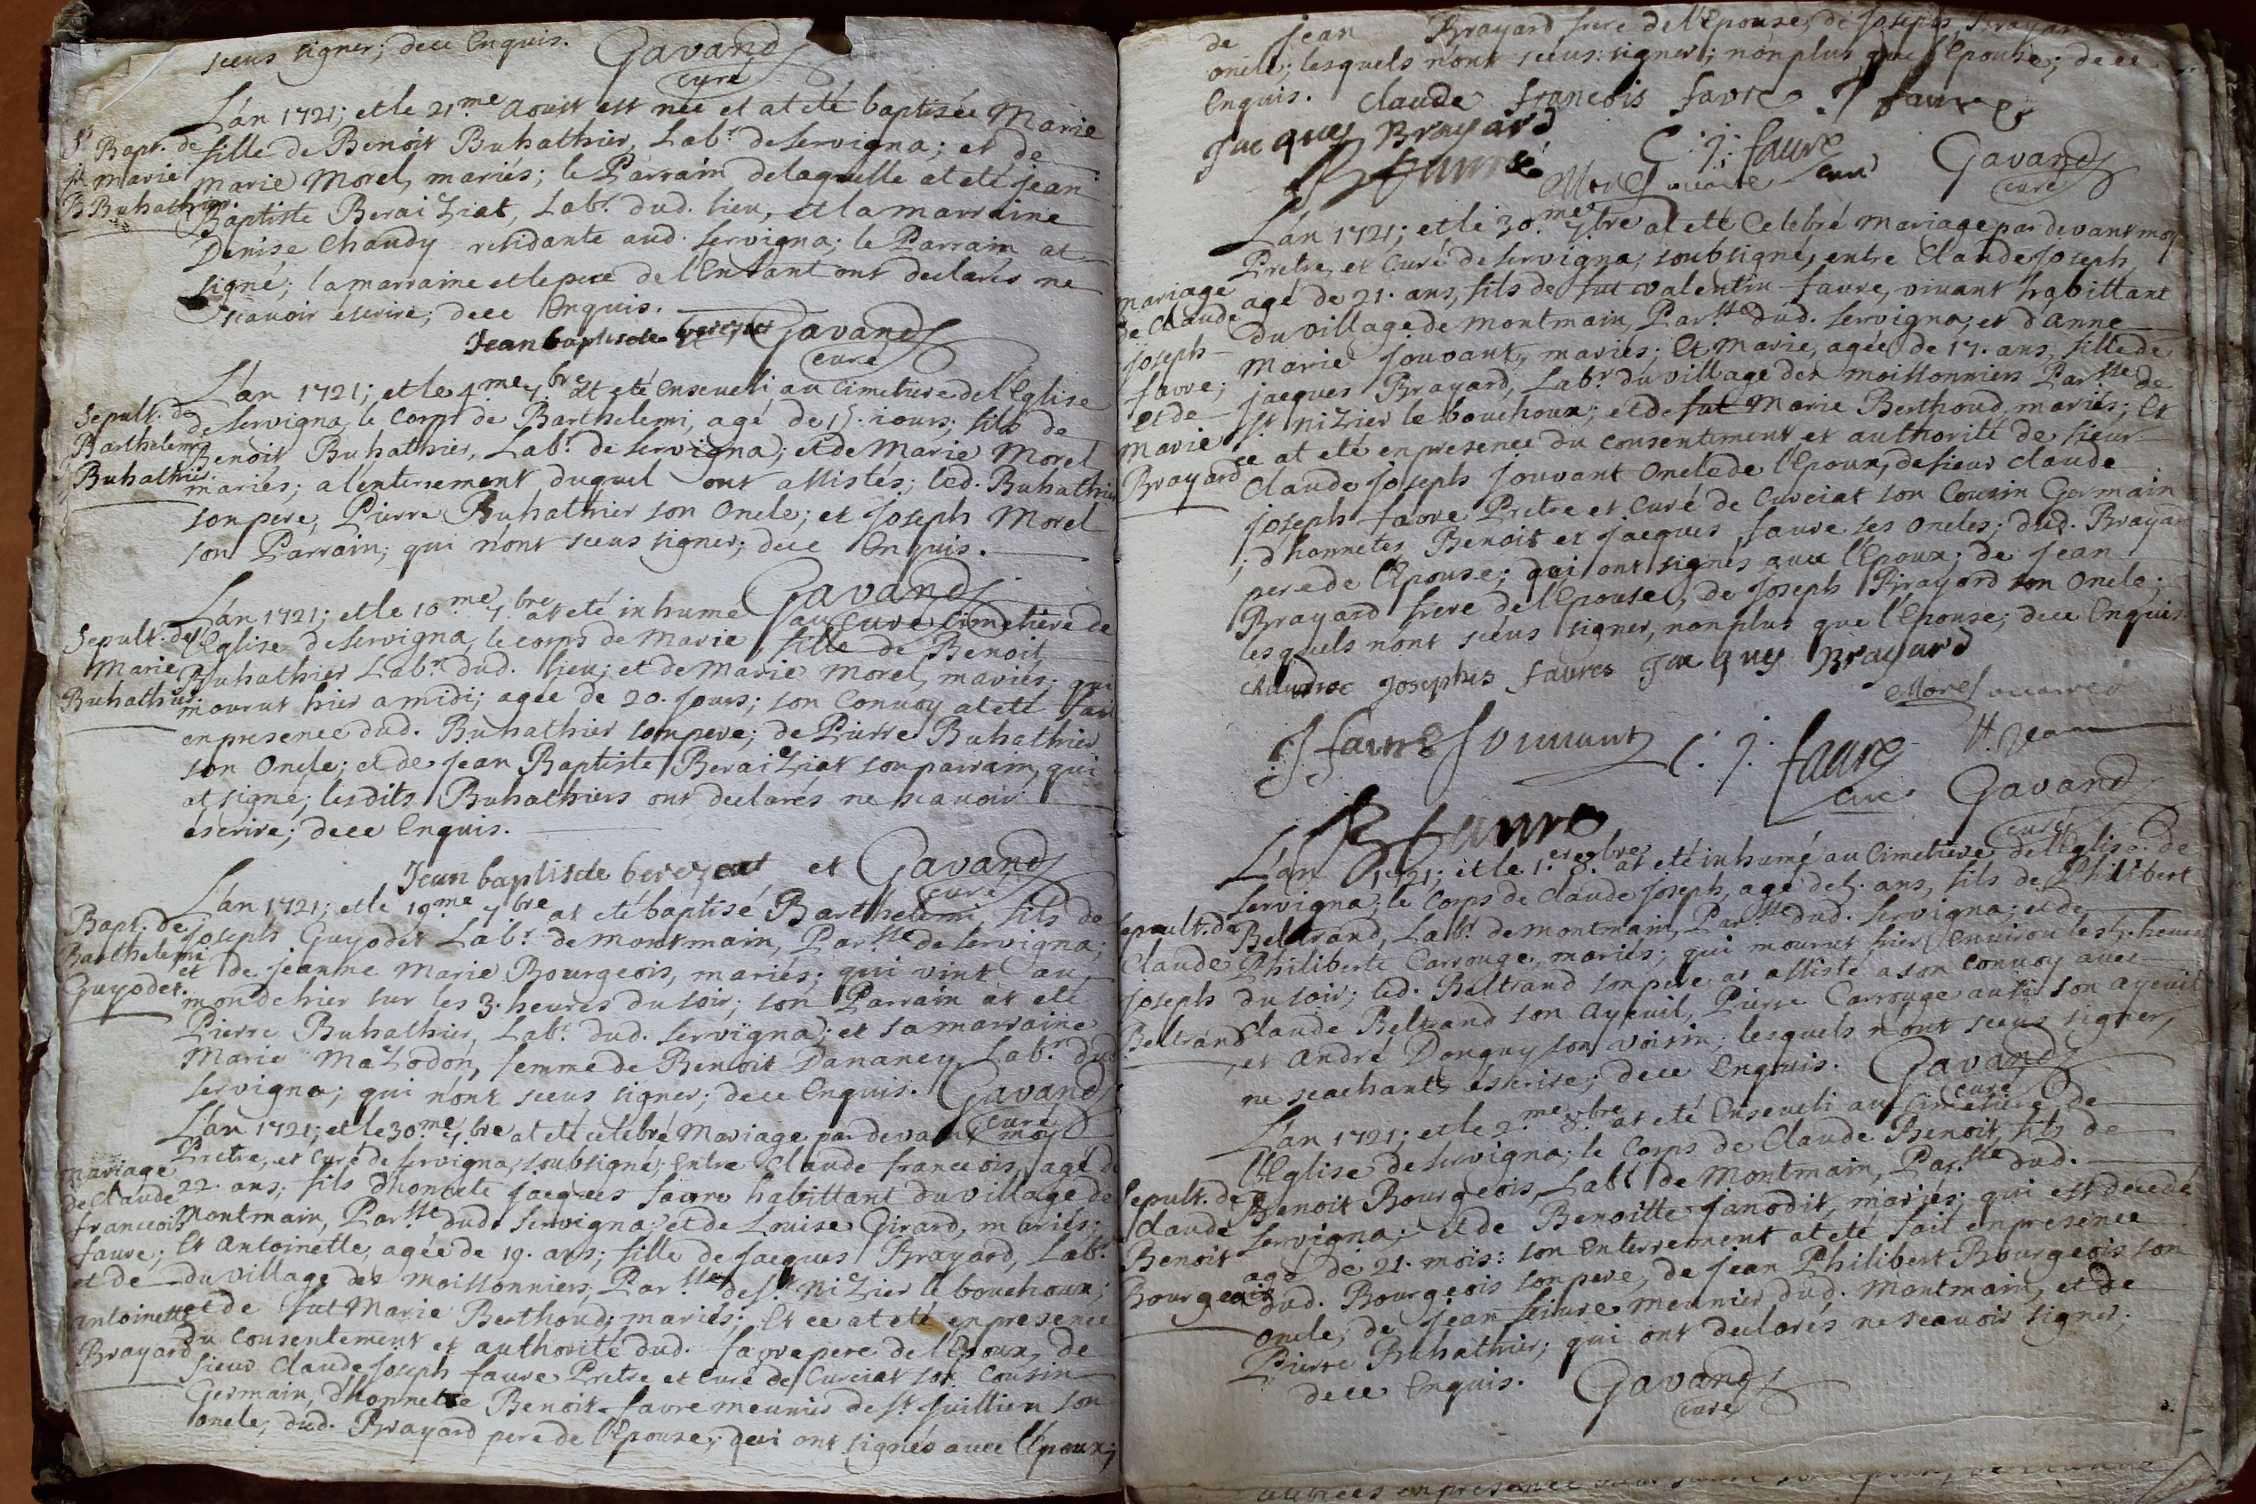 sceus signer; dece Enquis. Gavand
curé
L'an 1721; et le 21.me Aoust est née et at eté baptisée Marie
Bapt. de fille de Benoit Buhathier, Lab.r de Servigna; et de
Marie Marie Morel, mariés; le Parrain de laquelle at eté jean
Buhathier Baptiste Beraiziat, Lab.r dud. lieu, et la marraine
Denise Chaudy residante aud. Servigna; le Parrain at
signé; la marraine et le pere de l'Enfant ont declarés ne
scavoir éscrire; dece Enquis.
Jean baptiste Gavand
curé
L'an 1721; et le 4.me 7.bre at eté Enseveli au Cimetiere de l'Eglise
Sepult. de de Servigna, le Corps de Barthelemi, agé de 15. iours; fils de
Barthelemi Benoit Buhathier, Lab.r de Servigna; et de Marie Morel
Buhathier. mariés; a l'enterrement duquel ont assistés; led. Buhathier
son pere, Pierre Buhathier son Oncle; et Joseph Morel
son Parrain; qui n'ont sceus signer; dece Enquis.
Gavand
L'an 1721; et le 10.me 7.bre at eté inhumé au Cimetiere de
curé
Sepult. de l'Eglise de Servigna, le corps de Marie, fille de Benoit
Marie Buhathier Lab.r dud. lieu; et de Marie Morel, mariés; qui
Buhathier. mourut hier a midi; agée de 20. jours; son Convoy at eté fait
en presence dud. Buhathier son pere; de Pierre Buhathier
son Oncle; et de jean Baptiste Beraiziat son parrain, qui
at signé; lesdits Buhathiers ont declarés ne scavoir
éscrire; dece Enquis.
Jean baptiste bereziat et Gavand
curé
L'an 1721; et le 19.me 7.bre at eté baptisé Barthelemi, fils de
Bapt. de Joseph Guyodet Lab.r de Montmain, Par.sse de Servigna;
Barthelemi et de jeanne Marie Bourgeois, mariés; qui vint au
Guyodet. monde hier sur les 3. heures du soir; son Parrain at eté
Pierre Buhathier, Lab.r dud. Servigna; et sa marraine
Marie Mazodon, femme de Benoit Dananey Lab.r dud.
Servigna; qui n'ont sceus signer; dece Enquis. Gavand
curé
L'an 1721; et le 30.me 7.bre at eté celebré Mariage par devant moy
Prêtre, et Curé de Servigna, soubsigné; Entre Claude francois, agé de
Mariage 22. ans; fils d'honnete Jacques favre habittant du village de
de Claude Montmain, Par.sse dud. Servigna; et de Louise Girard, mariés;
francois
favre; Et Antoinette, agée de 19. ans; fille de Jacques Brayard, Lab.r
et de du village des moissonniers, Par.sse de S.t Nizier le bouchoux;
Antoinette et de fut Marie Berthoud, mariés; Et ce at eté en presence
Brayard du Consentement et authorité dud. favre pere de l'Epoux, de
sieur Claude Joseph favre Prêtre et Curé de Curciat son Cousin
Germain, d'honnette Benoit favre meunier de S.t Juillien son
oncle, dud. Brayard pere de l'Epouse; qui ont signés avec l'Epoux;
de jean Brayard frere de l'Epouse, de Joseph Brayard
oncle; lesquels n'ont sceus signer; nonplus que l'Epouse; dece
Enquis. Claude francois favre J favre
Jacques Brayard
B favre C. j. favre curé Gavand
Morel curé
L'an 1721; et le 30.me 7.bre at eté Celebré Mariage par devant moy
Prêtre, et Curé de Servigna, soubsigné, entre Claude Joseph
Mariage agé de 21. ans, fils de fut Valentin favre, vivant habittant
de Claude du village de Montmain, Par.sse dud. Servigna; et d'Anne
Joseph Marie Jouvant, mariés; Et Marie, agée de 17. ans, fille de
favre; jacques Brayard, Lab.r du village des moissonniers Par.sse de
et de S.t Nizier le bouchoux; et de fut Marie Berthoud, mariés; Et
Marie ce at eté en presence du consentement et authorité de sieur
Brayard Claude Joseph Jouvant Oncle de l'Epoux, de sieur Claude
Joseph favre Prêtre et Curé de Curciat son Cousin Germain
; d'honnetes Benoit et jacques favre ses oncles; dud. Brayard
pere de l'Epouse; qui ont signés avec l'Epoux; de jean
Brayard frere de l'Epouse, de Joseph Brayard son Oncle;
lesquels n'ont sceus signer, nonplus que l'Epouse; dece Enquis.
Josephus favres Jacques Brayard
Morel
J favre Jouvant C. j. favre
curé Gavand
B favre curé
L'an 1721; et le 1.er 8.bre at eté inhumé au Cimetiere de l'Eglise de
Servigna; le Corps de Claude Joseph, agé de 5. ans, fils de Philibert
Sepult. de Beltrand, Lab.r de Montmain, Par.sse dud. Servigna; et de
Claude Philiberte Carrouge, mariés; qui mourut hier environ les heures
Joseph du soir; led. Beltrand son pere at assisté a son Convoy avec
Beltrand Claude Beltrand son Ayeuil, Pierre Carrouge aussi son ayeuil
, et André Donguy son voisin; lesquels n'ont sceus signer,
ne scachants éscrire; dece Enquis. Gavand
curé
L'an 1721; et le 2.me 8.bre at eté Enseveli au Cimetiere de
l'Eglise de Servigna; le Corps de Claude Benoit, fils de
Sepult. de Benoit Bourgeois, Lab.r de Montmain, Par.sse dud.
Claude Servigna; et de Benoitte Janodit, mariés; qui est decedé
Benoit agé de 21. mois: son Enterrement at eté fait en presence
Bourgeois dud. Bourgeois son pere, de jean Philibert Bourgeois son
oncle, de jean feivre meunier dud. Montmain, et de
Pierre Buhathier; qui ont declarés ne scavoir signer.
dece Enquis. Gavand
curé